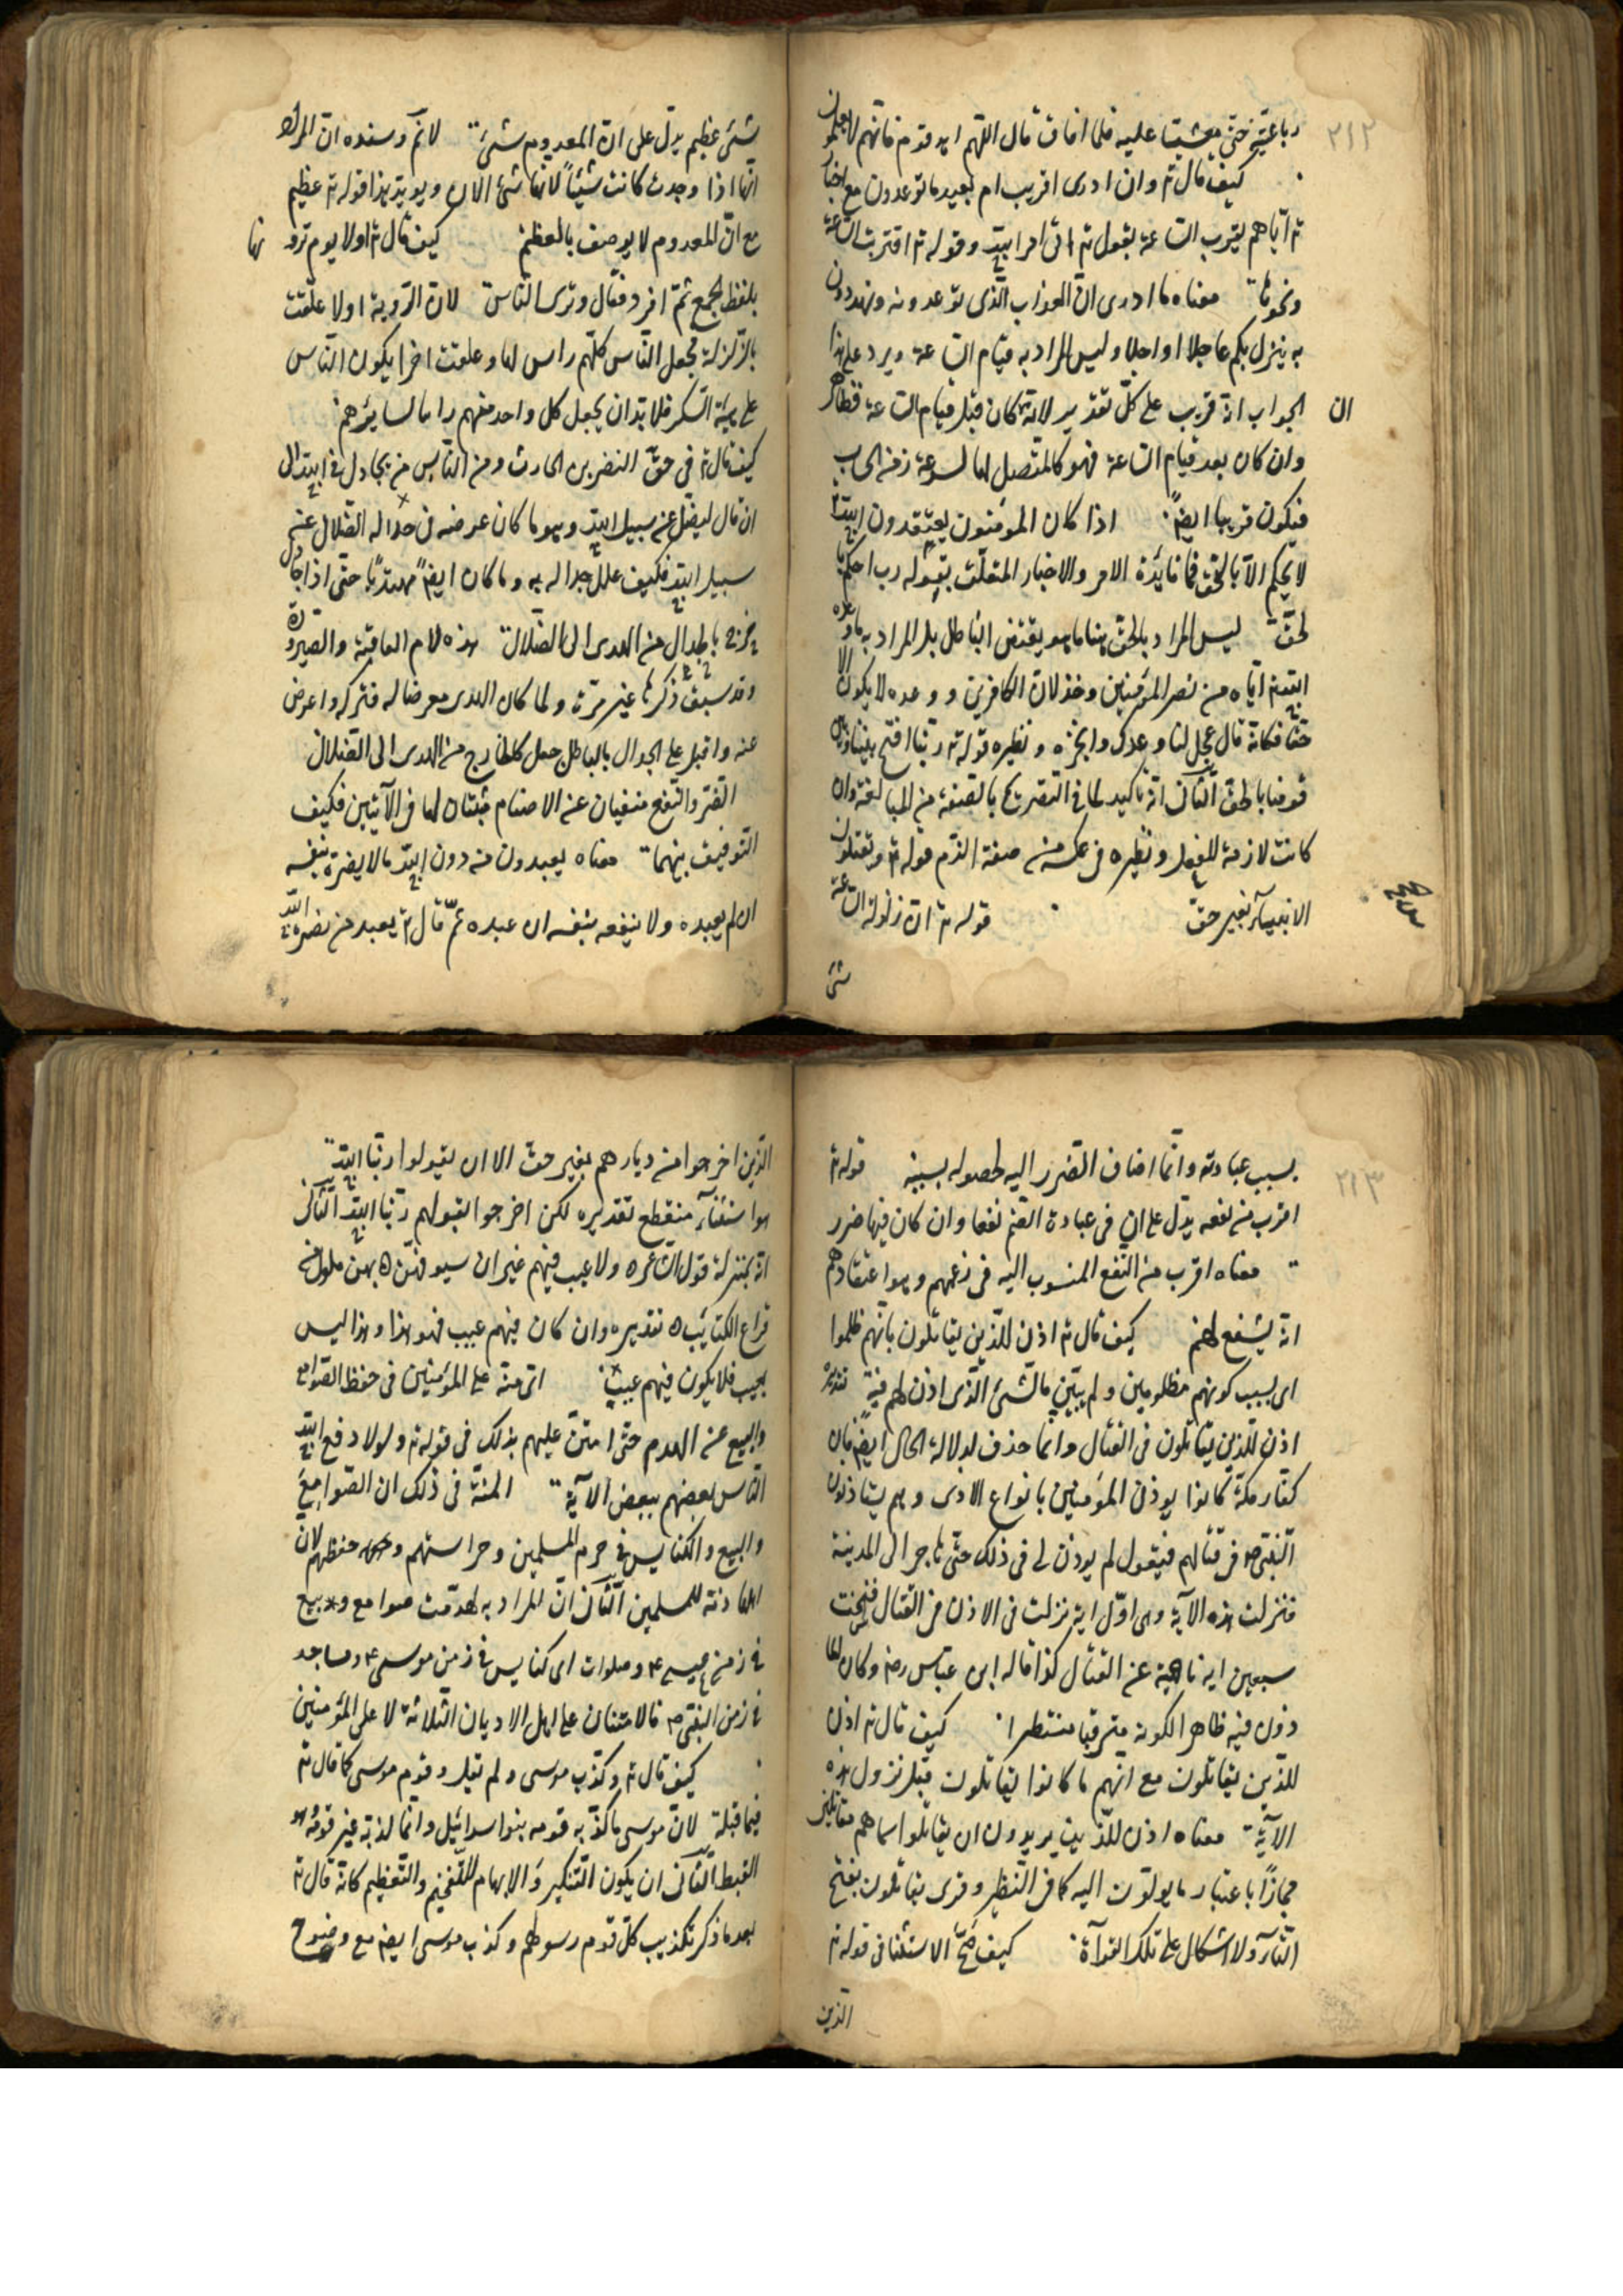 ٢١٢
رباعيته حتى مغشيا عليه فلما افاق قال اللهم اهد قومى فانهم لا يعلمون
كيف قال تع وان ادرى اقريب ام بعيد ما توعدون مع اخباره
تع اياهم بقرب الساعة بقوله تع اتى امر الله وقوله تع اقتربت الساعة
ونحوها معناه ما ادرى ان العذاب الذى توعدونه وتهددون
به ينزل بكم عاجلا او اجلا وليس المراد به قيام الساعة ويرد على هذا
الجواب انه قريب على كل تقدير لانه ان كان قبل قيام الساعة فظاهر
وان كان بعد قيام الساعة فهو كالمتصل لها لسرعة زمن الحساب
فيكون قريبا ايضا اذا كان المؤمنون يعتقدون ان الله
لا يحكم الا بالحق فما فائدة الامر والاخبار المتعلق بقوله رب احكم
بالحق ليس المراد بالحق هنا ما هو نقيض الباطل بل المراد به ما وعده
الله تع اياه من نصر المؤمنين وخذلان الكافرين ووعده لا يكون الا
حقا فكانه قال عجل لنا وعدك وانجزه ونظيره قوله تع ربنا افتح بيننا وبين
قومنا بالحق الثانى انه تاكيد لما فى التصريح بالصفة من المبالغة وان
كانت لازمة للفعل ونظيره فى عكسه من صفة الذم قوله تع وتقتلون
الانبياء بغير حق قوله تع ان زلزلة الساعة
شئ
شئ عظيم يدل على ان المعدوم شئ لا نم وسنده ان المراد
انها اذا وجدت كانت شيئا لا انها شئ الان ويؤيد هذا قوله تع عظيم
مع ان المعدوم لا يوصف بالعظيم كيف قال تع اولا يوم ترونها
بلفظ الجمع ثم افرد فقال وترى الناس لان الرؤية اولا علقت
بالزلزلة فجعل الناس كلهم رائين لها وعلقت اخرا بكون الناس
على هيئة السكر فلا بد ان يجعل كل واحد منهم رائيا لسائرهم
كيف قال تع فى حق النضر بن الحارث ومن الناس من يجادل فى الله الى
ان قال ليضل عن سبيل الله وهو ما كان غرضه فى جداله الضلال عن
سبيل الله فكيف علل جداله به وما كان ايضا مهتديا حتى اذا جادل
خرج بالجدال من الهدى الى الضلال هذه لام العاقبة والصيرورة
وقد سبق ذكرها غير مرة ولما كان الهدى معرضا له فتركه واعرض
عنه واقبل على الجدال بالباطل جعل كالخارج من الهدى الى الضلال
الضر والنفع منفيان عن الاصنام مثبتان لها فى الآيتين فكيف
التوفيق بينهما معناه يعبدون من دون الله ما لا يضره بنفسه
ان لم يعبده ولا ينفعه بنفسه ان عبده ثم قال تع يعبد من نصره الله
٢١٣
بسبب عبادته وانما اضاف الضرر اليه لحصوله بسببه قوله تع
اقرب من نفعه يدل على ان فى عبادة الصنم نفعا وان كان فيها ضرر
معناه اقرب من النفع المنسوب اليه فى زعمهم وهو اعتقادهم
انه يشفع لهم كيف قال تع اذن للذين يقاتلون بانهم ظلموا
اى بسبب كونهم مظلومين ولم يبين ما الشئ الذى اذن لهم فيه تقديره
اذن للذين يقاتلون فى القتال وانما حذف لدلالة الحال ايضا فان
كفار مكة كانوا يوذون المؤمنين بانواع الاذى وهم يستاذنون
النبى ص فى قتالهم فيقول لم يوذن لى فى ذلك حتى هاجر الى المدينة
فنزلت هذه الآية وهى اول اية نزلت فى الاذن فى القتال فنسخت
سبعين اية ناهية عن القتال كذا قاله ابن عباس رض وكان المأ
ذون فيه ظاهر الكونه مترقبا منتظرا كيف قال تع اذن
للذين يقاتلون مع انهم ما كانوا يقاتلون قبل نزول هذه
الآية معناه اذن للذين يريدون ان يقاتلوا سماهم مقاتلين
مجازا باعتبار ما يؤلون اليه كما فى النظر وقرى يقاتلون بفتح
التاء ولا اشكال على تلك القراءة كيف صح الاستثنا فى قوله تع
الذين
الذين اخرجوا من ديارهم بغير حق الا ان يقولوا ربنا الله
هو استثناء منقطع تقديره لكن اخرجوا بقولهم ربنا الله الثانى
انه بمنزلة قول الشاعر ه ولا عيب فيهم غير ان سيوفهن ه بهن فلول من
قراع الكتائب ه تقديره وان كان فيهم عيب فهو هذا وهذا ليس
بعيب فلا يكون فيهم عيب اى منة على المؤمنين فى حفظ الصوامع
والبيع عن الهدم حتى امتن عليهم بذلك فى قوله تع ولولا دفع الله
الناس بعضهم ببعض الآية المنة فى ذلك ان الصوامع
والبيع والكنايس فى حرم المسلمين وحراستهم وحفظهم لان
اهلها ذمة للمسلمين الثانى ان المراد به لهدمت صوامع وبيع
فى زمن عيسى ع وصلوات اى كنايس فى زمن موسى ع ومساجد
فى زمن النبى ص فالامتنان على اهل الاديان الثلاثة لا على المؤمنين
كيف قال تع وكذب موسى ولم يقل وقوم موسى كما قال تع
فيما قبله لان موسى ما كذبه قومه بنوا سرائيل وانما كذبه غير قومه وهو
القبط الثانى ان يكون التنكير والابهام للتفخيم والتعظيم كانه قال تع
بعد ما ذكر تكذيب كل قوم رسولهم وكذب موسى ايضا مع وضوح